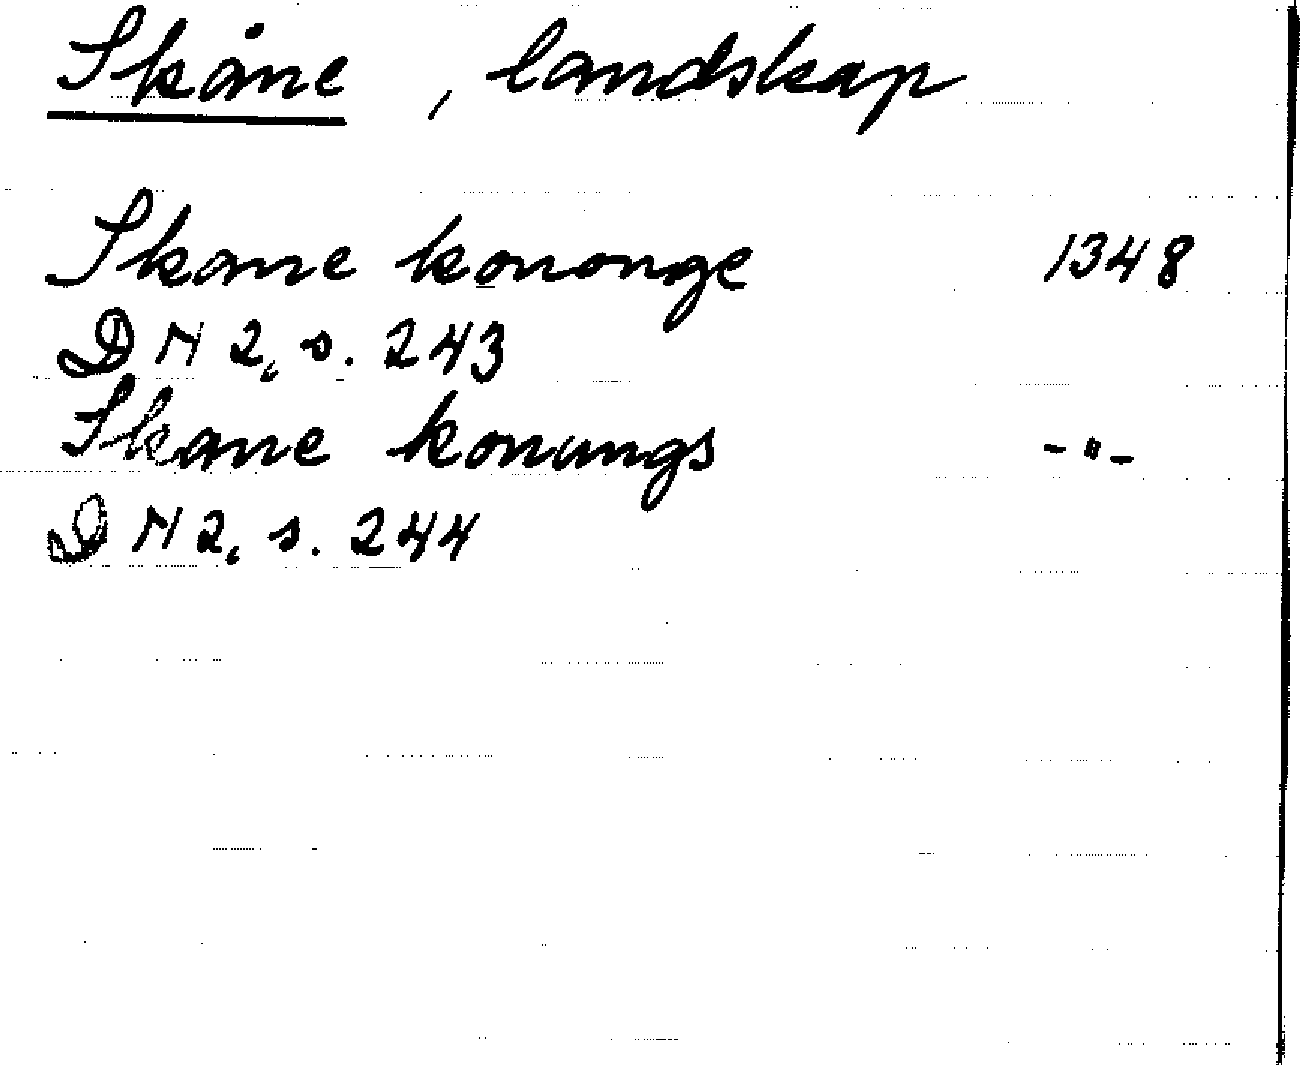 Skåne, landskap
Skane kononge 1348
DN 2, s. 243
Skane konungs -"-
DN 2, s. 244